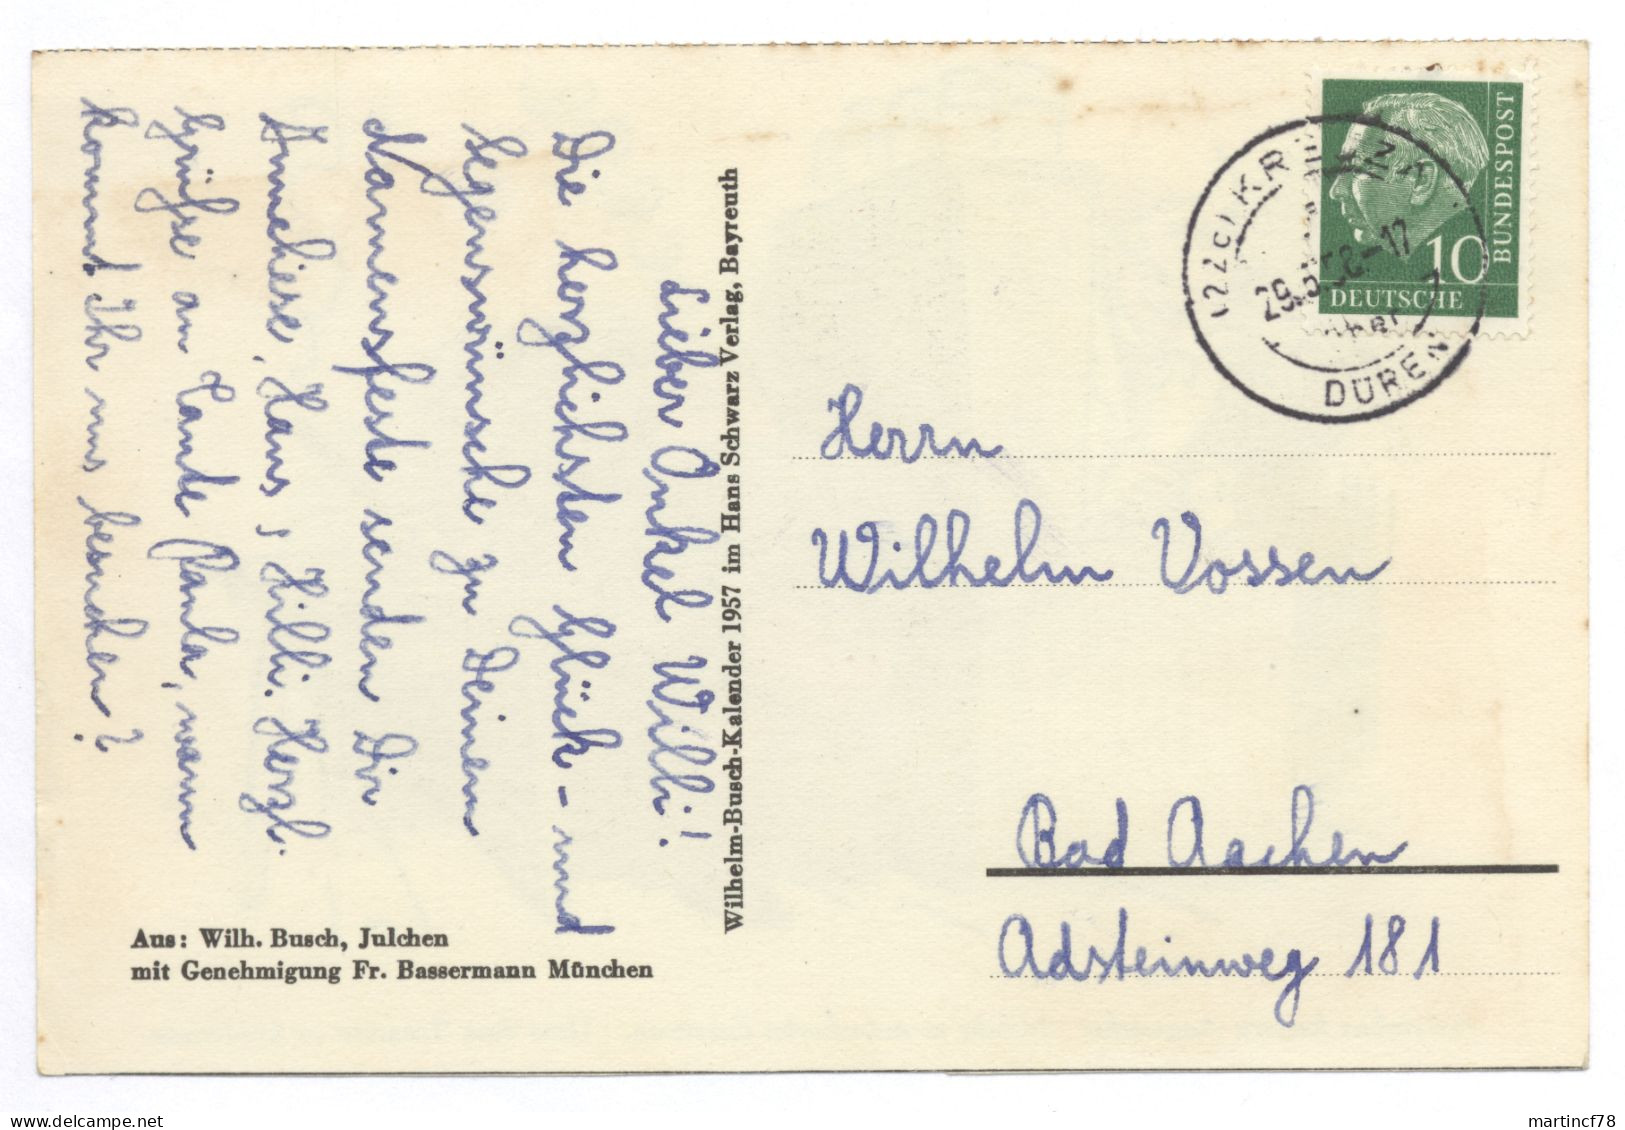 Lieber Onkel Willi!
Die herzlichsten Glück- und
Segenswünsche zu Deinem
Namensfeste senden Dir
Anneliese, Hans, Hilli. Herzl.
Grüße an Tante Paula, wann
kommt Ihr uns besuchen?
Aus: Wilh. Busch, Julchen
mit Genehmigung Fr. Bassermann München
Wilhelm-Busch-Kalender 1957 im Hans Schwarz Verlag, Bayreuth
BUNDESPOST
10
DEUTSCHE
(22c) KREUZAU
über
DÜREN
Herrn
Wilhelm Vossen
Bad Aachen
Adsteinweg 181
martincf78